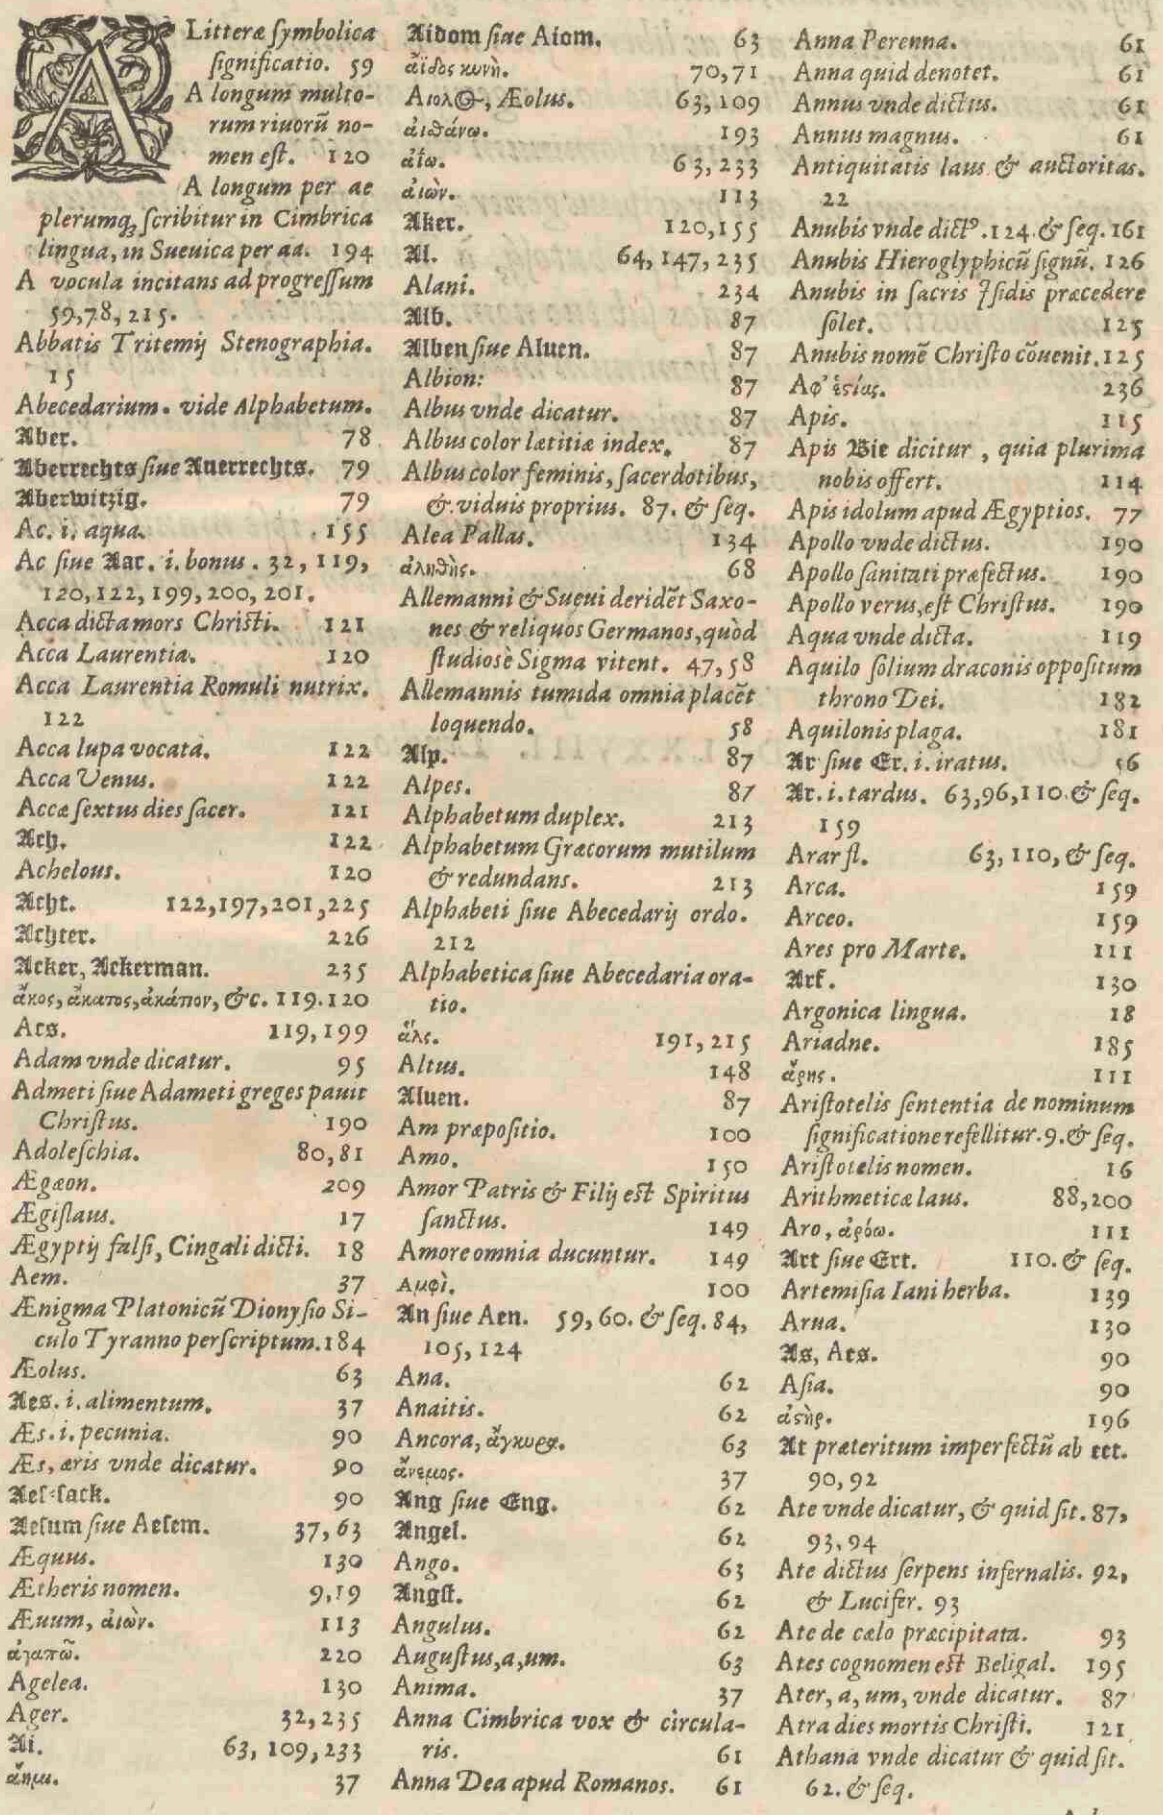 A Litteræ ſymbolica
ſignificatio. 59
A longum multo-
rum riuorũ no-
men eſt. 120
A longum per ae
plerumq; ſcribitur in Cimbrica
lingua, in Sueuica per aa. 194
A vocula incitans ad progreſſum
59,78,215.
Abbatis Tritemij Stenographia.
15
Abecedarium. vide Alphabetum.
Aber. 78
Aberrechts ſiue Auerrechts. 79
Aberwitzig. 79
Ac. i. aqua. 155
Ac ſiue Aac. i. bonus. 32, 119,
120, 122, 199, 200, 201.
Acca dicta mors Chriſti. 121
Acca Laurentia. 120
Acca Laurentia Romuli nutrix.
122
Acca lupa vocata. 122
Acca Venus. 122
Accæ ſextus dies ſacer. 121
Ach. 122
Achelous. 120
Acht. 122,197,201,225
Achter. 226
Acker, Ackerman. 235
ἄκος, ἄκατος, ἀκάτιον, &c. 119.120
Acs. 119,199
Adam vnde dicatur. 95
Admeti ſiue Adameti greges pauit
Chriſtus. 190
Adoleſchia. 80,81
Ægæon. 209
Ægiſlaus. 17
Ægyptij falſi, Cingali dicti. 18
Aem. 37
Ænigma Platonicũ Dionyſio Si-
culo Tyranno perſcriptum. 184
Æolus. 63
Aes. i. alimentum. 37
Æs. i. pecunia. 90
Æs, æris vnde dicatur. 90
Aeſ-ſack. 90
Aeſum ſiue Aeſem. 37,63
Æquus. 130
Ætheris nomen. 9,19
Æuum, ἀιὼν. 113
ἀγαπῶ. 220
Agelea. 130
Ager. 32,235
Ai. 63, 109,233
ἄημι. 37
Aidom ſiue Aiom. 63
ἄϊδος κυνὴ. 70,71
Αιολος, Æolus. 63,109
ἀιθάνω. 193
ἀΐω. 63,233
ἀιὼν. 113
Aker. 120,155
Al. 64, 147, 235
Alani. 234
Alb. 87
Alben ſiue Aluen. 87
Albion: 87
Albus vnde dicatur. 87
Albus color lætitiæ index. 87
Albus color feminis, ſacerdotibus,
& viduis proprius. 87. & ſeq.
Alea Pallas. 134
ἀληθὴς. 68
Allemanni & Sueui deridẽt Saxo-
nes & reliquos Germanos, quòd
ſtudiosè Sigma vitent. 47,58
Allemannis tumida omnia placẽt
loquendo. 58
Alp. 87
Alpes. 87
Alphabetum duplex. 213
Alphabetum Græcorum mutilum
& redundans. 213
Alphabeti ſiue Abecedarij ordo.
212
Alphabetica ſiue Abecedaria ora-
tio.
ἅλς. 191, 215
Altus. 148
Aluen. 87
Am præpoſitio. 100
Amo. 150
Amor Patris & Filij eſt Spiritus
ſanctus. 149
Amore omnia ducuntur. 149
Αμφὶ. 100
An ſiue Aen. 59, 60. & ſeq. 84,
105, 124
Ana. 62
Anaitis. 62
Ancora, ἄγκυρα. 63
ἄνεμος. 37
Ang ſiue Eng. 62
Angel. 62
Ango. 63
Angſt. 62
Angulus. 62
Auguſtus, a, um. 63
Anima. 37
Anna Cimbrica vox & circula-
ris. 61
Anna Dea apud Romanos. 61
Anna Perenna. 61
Anna quid denotet. 61
Annus vnde dictus. 61
Annus magnus. 61
Antiquitatis laus & auctoritas.
22
Anubis vnde dictꝰ. 124. & ſeq. 161
Anubis Hieroglyphicũ ſignũ. 126
Anubis in ſacris Iſidis præcedere
ſolet. 125
Anubis nomẽ Chriſto cõuenit. 125
Αφ' ἑστίας. 236
Apis. 115
Apis Bie dicitur, quia plurima
nobis offert. 114
Apis idolum apud Ægyptios. 77
Apollo vnde dictus. 190
Apollo ſanitati præfectus. 190
Apollo verus, eſt Chriſtus. 190
Aqua vnde dicta. 119
Aquilo ſolium draconis oppoſitum
throno Dei. 182
Aquilonis plaga. 181
Ar ſiue Er. i. iratus. 56
Ar. i. tardus. 63,96,110. & ſeq.
159
Arar fl. 63, 110, & ſeq.
Arca. 159
Arceo. 159
Ares pro Marte. 111
Ark. 130
Argonica lingua. 18
Ariadne. 185
ἄρης. 111
Ariſtotelis ſententia de nominum
ſignificatione refellitur. 9. & ſeq.
Ariſtotelis nomen. 16
Arithmeticæ laus. 88,200
Aro, ἀρόω. 111
Art ſiue Ert. 110. & ſeq.
Artemiſia Iani herba. 139
Arua. 130
As, Aes. 90
Aſia. 90
ἀστὴρ. 196
At præteritum imperfectũ ab eet.
90, 92
Ate vnde dicatur, & quid ſit. 87,
93, 94
Ate dictus ſerpens infernalis. 92,
& Lucifer. 93
Ate de cælo præcipitata. 93
Ates cognomen eſt Beligal. 195
Ater, a, um, vnde dicatur. 87
Atra dies mortis Chriſti. 121
Athana vnde dicatur & quid ſit.
62. & ſeq.